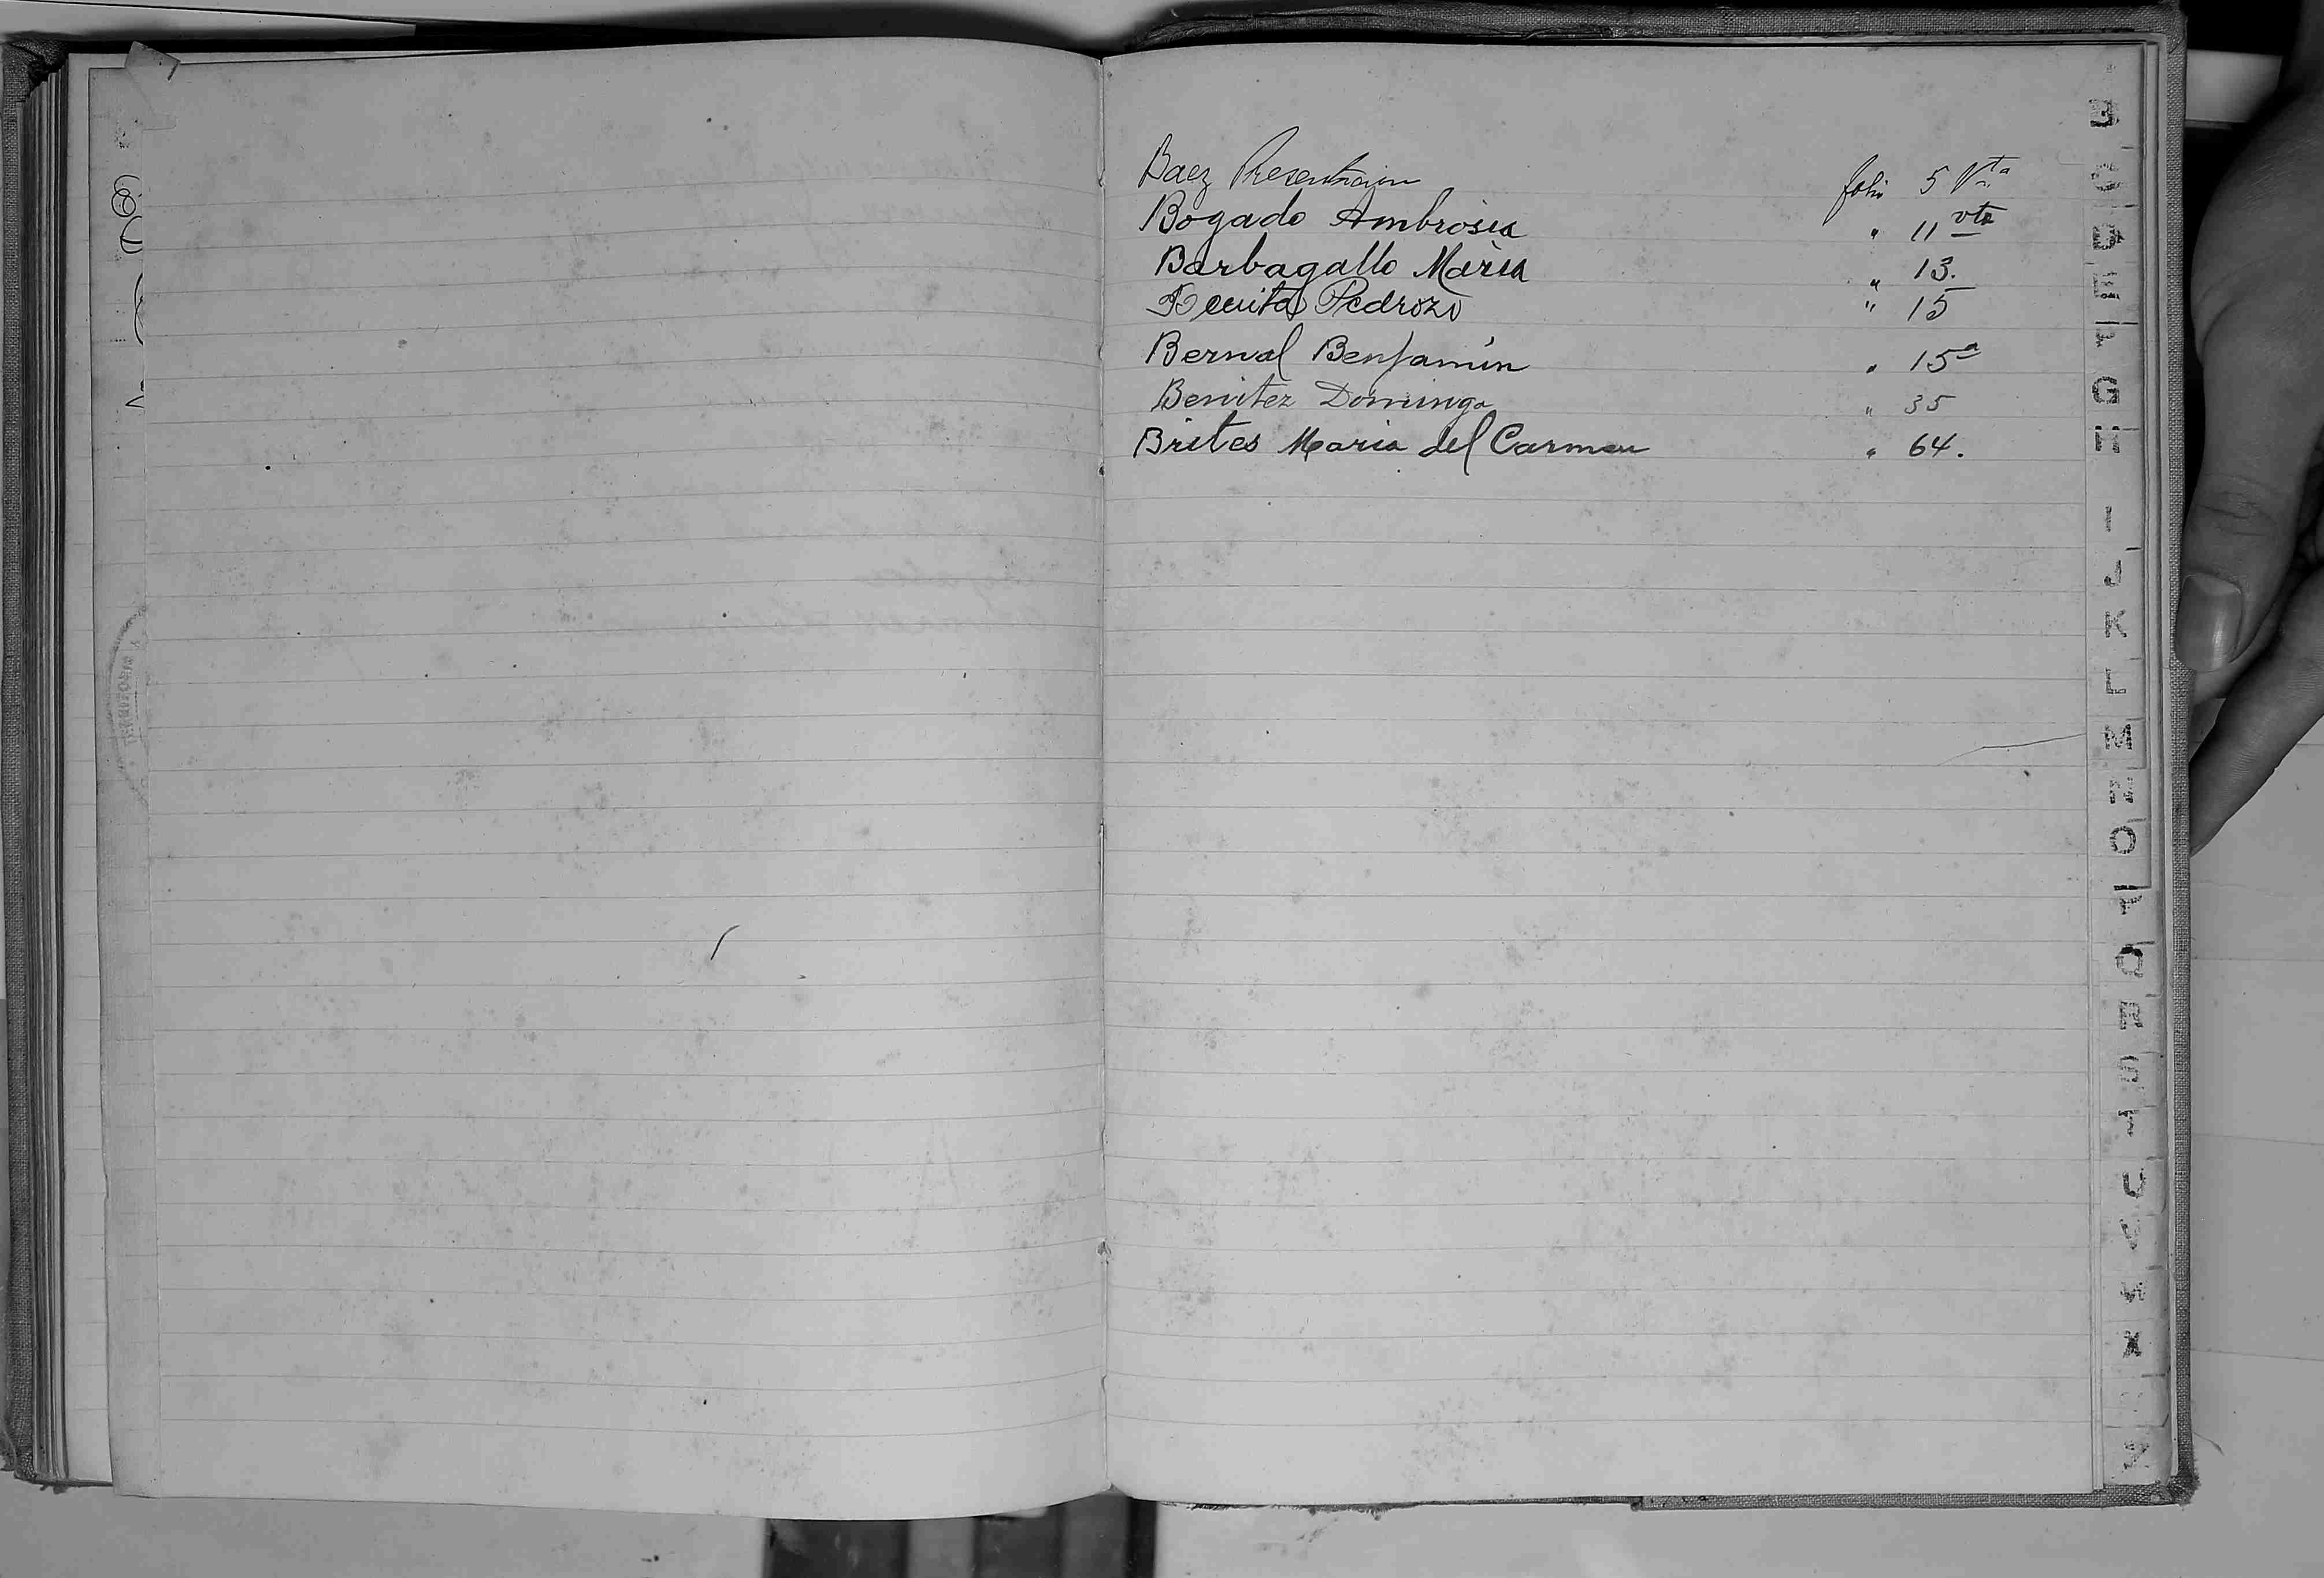 Baez Presentacion folio 5 Vta
Bogado Ambrosia " 11 vta
Barbagallo Maria " 13.
Benita Pedrozo " 15
Bernal Benjamin " 15a
Benitez Dominga " 35
Brites Maria del Carmen " 64.
B
C
D
E
F
G
H
I
J
K
L
M
N
O
P
Q
R
S
T
U
V
W
X
Z